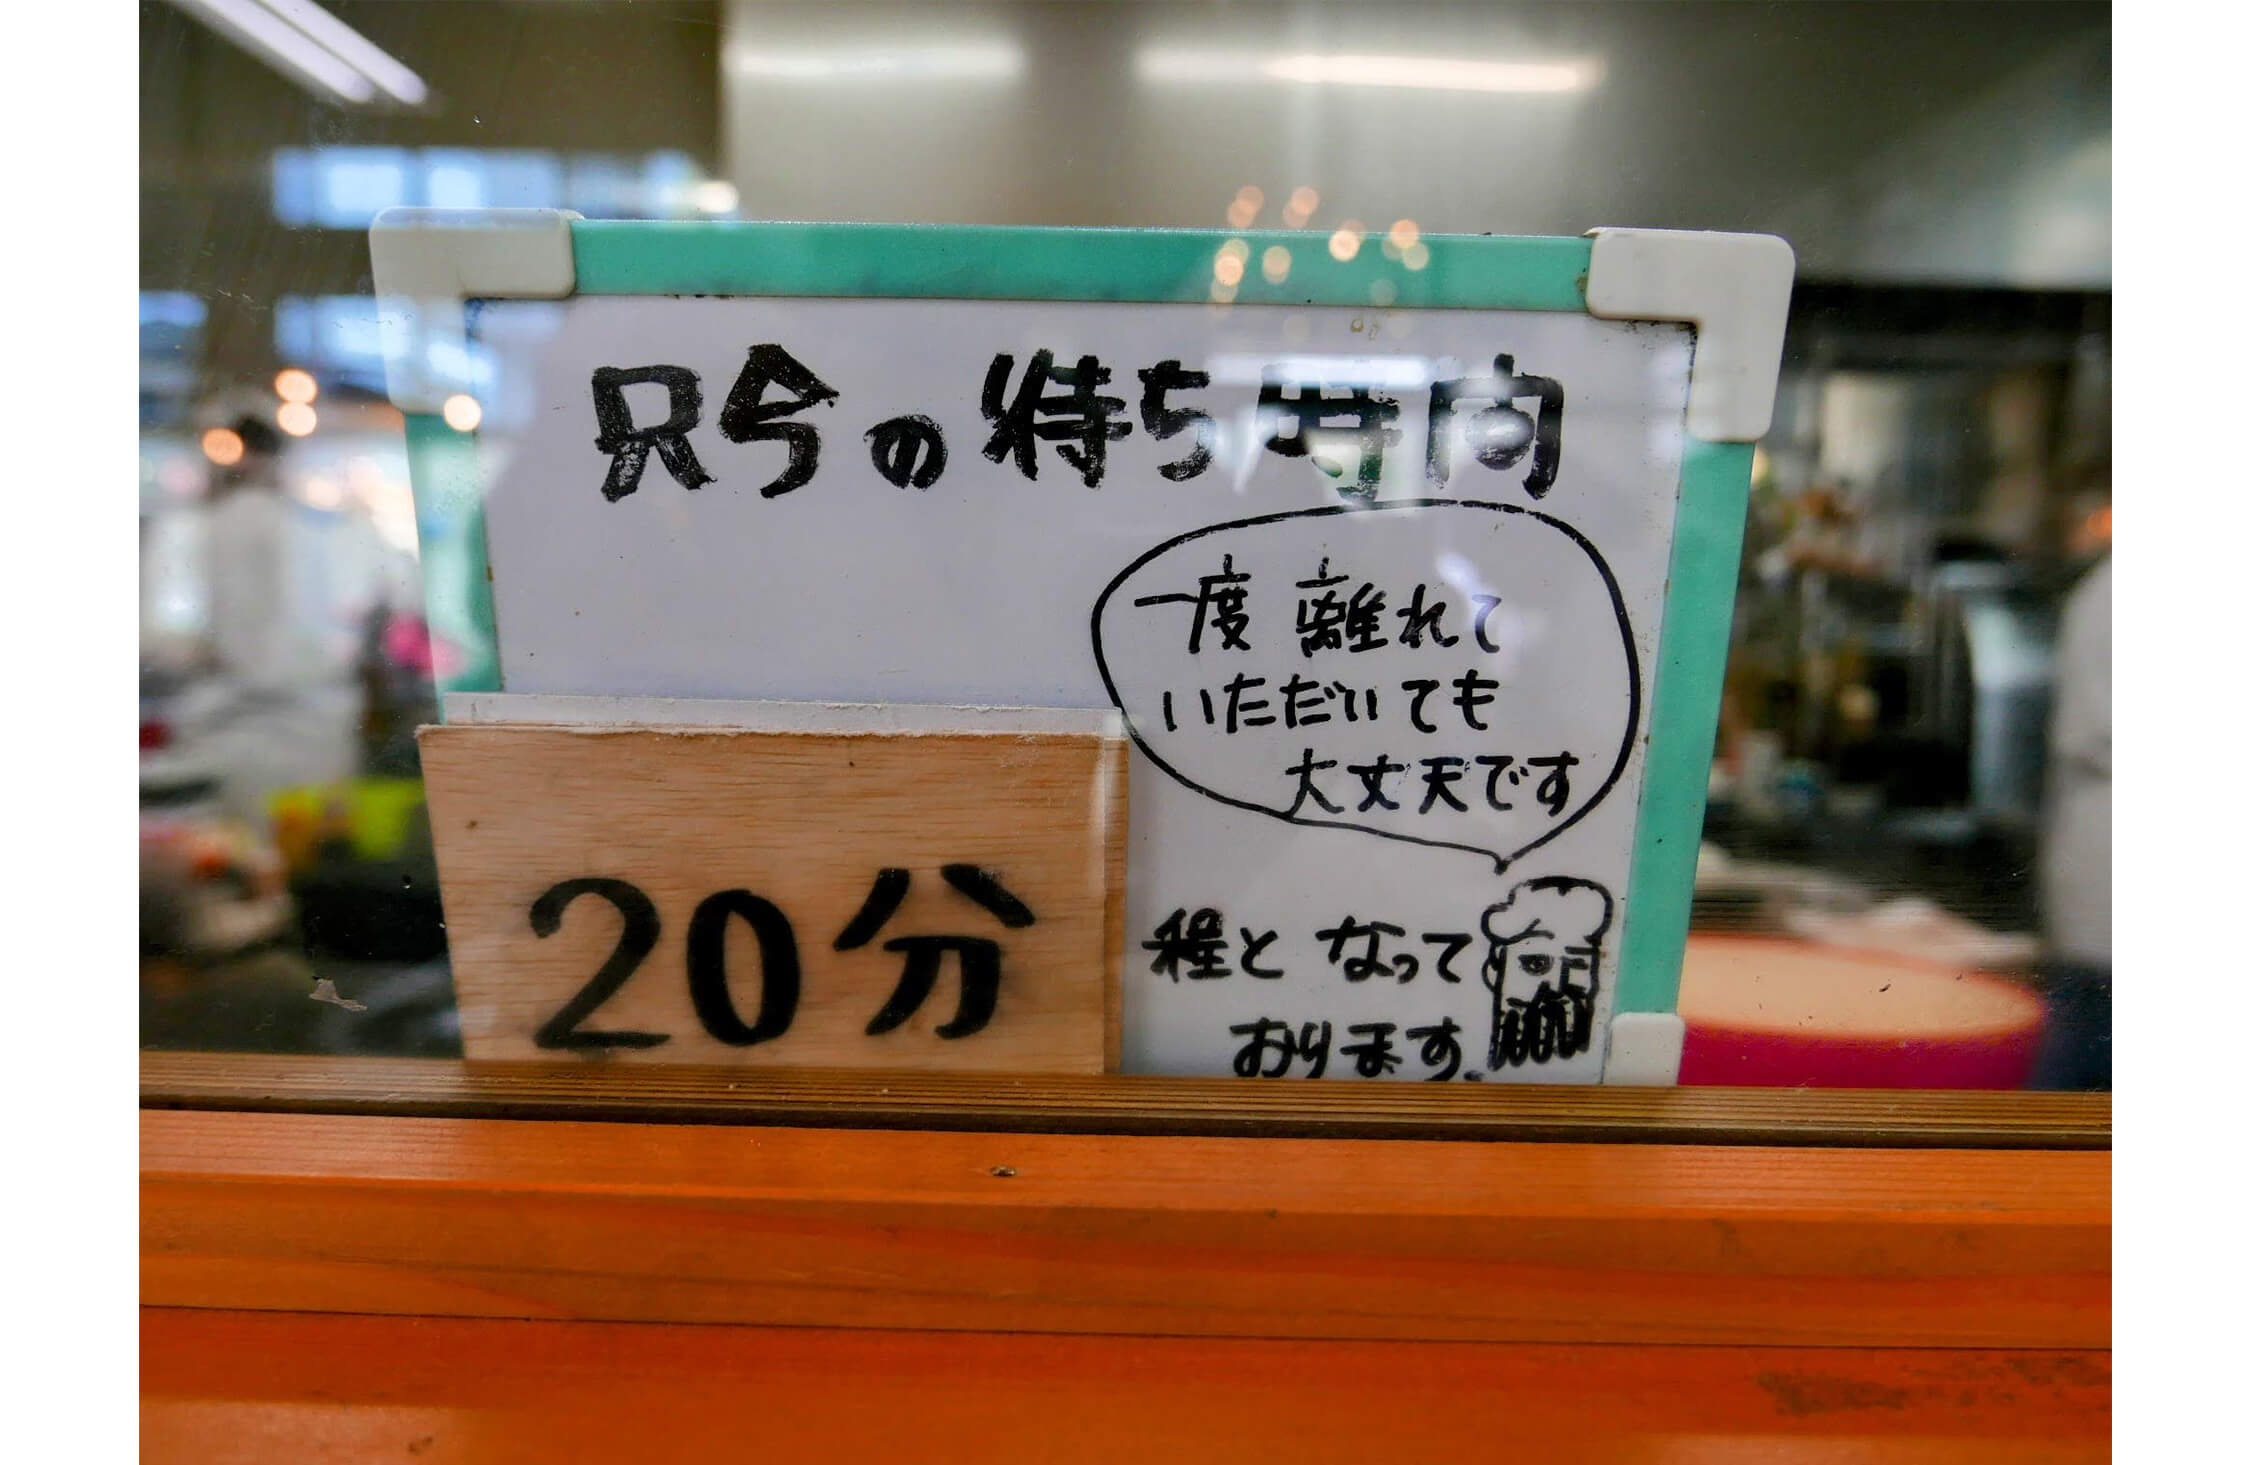 只今の待ち時間
一度離れて
いただいても
大丈天です
20分
程となって
おります。